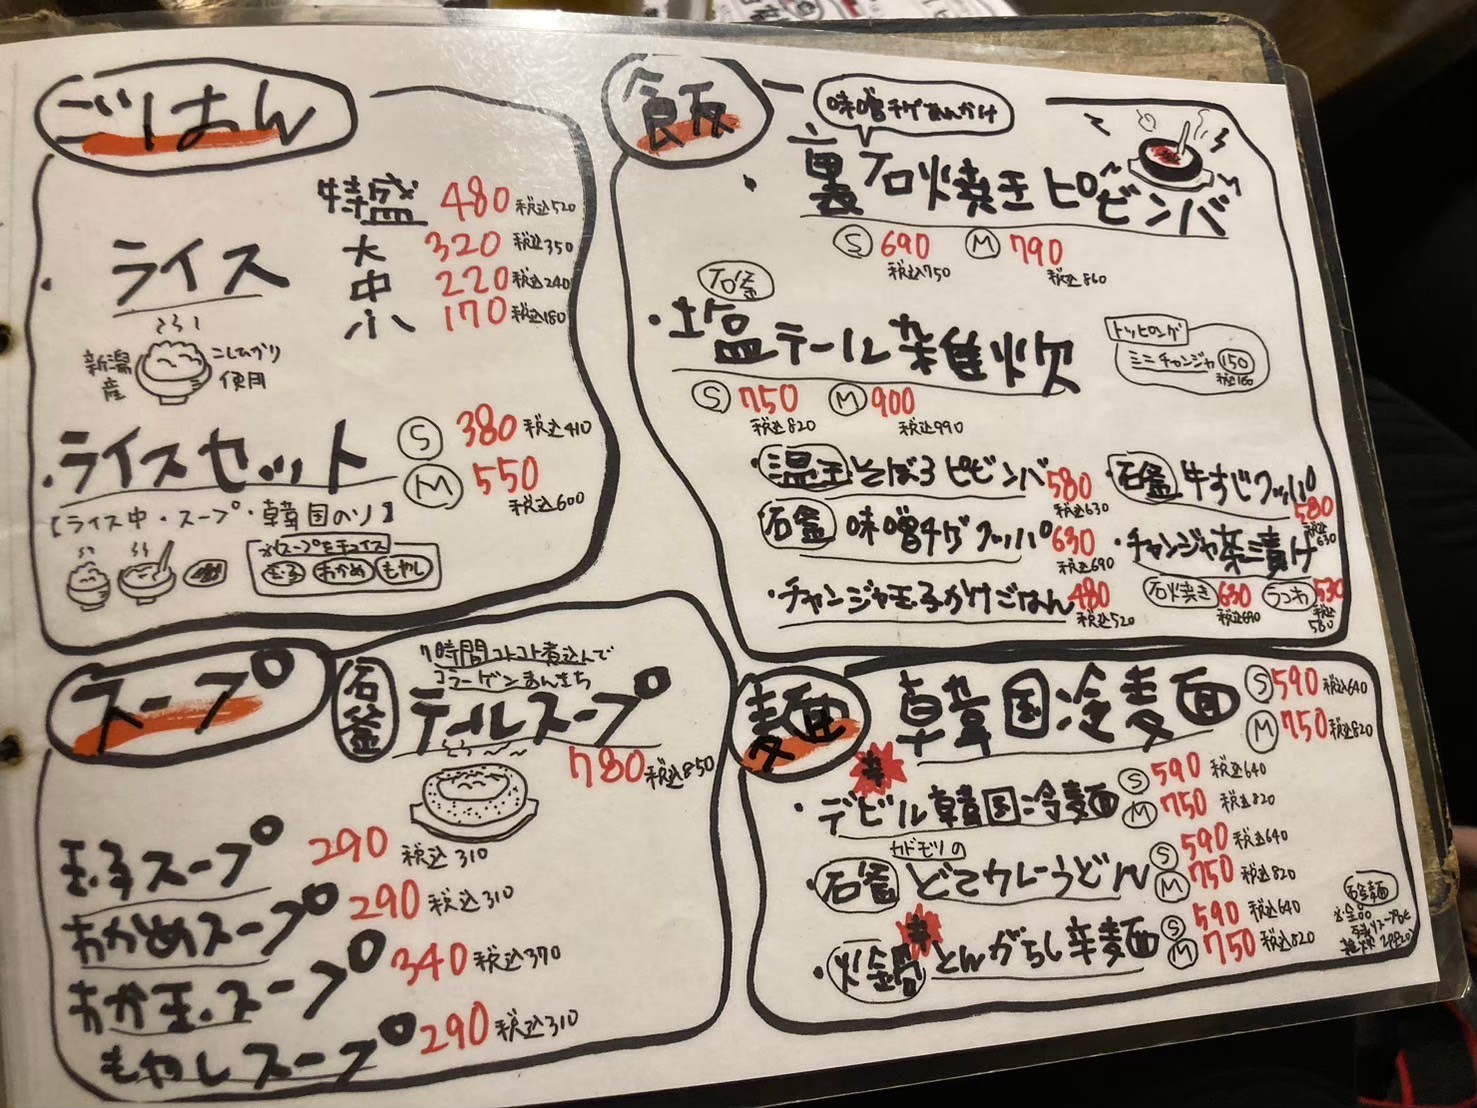 ごはん
・ライス
特盛 480 税込520
大 320 税込350
中 220 税込240
小 170 税込180
新潟産
こしひかり使用
・ライスセット
S 380 税込410
M 550 税込600
【ライス中・スープ・韓国のり】
※スープをチョイス
玉子 わかめ もやし
飯
味噌チゲあんかけ
・裏石焼きビビンバ
S 690 税込750 M 790 税込860
石釜
・塩テール雑炊
S 750 税込820 M 900 税込990
トッピング
ミニチャンジャ 150
税込160
・温玉そぼろビビンバ 580 税込630
・石釜 牛すじクッパ 580 税込630
・石釜 味噌チゲクッパ 630 税込690
・チャンジャ茶漬け
石焼き 630 税込690 530 税込580
・チャンジャ玉子かけごはん 480 税込520
スープ
7時間コトコト煮込んで
コラーゲンまんまち
石釜 テールスープ
780 税込850
玉子スープ 290 税込310
わかめスープ 290 税込310
わか玉スープ 340 税込370
もやしスープ 290 税込310
麺
韓国冷麺 S 590 税込640
M 750 税込820
辛
・デビル韓国冷麺 S 590 税込640
M 750 税込820
カドモリの
・石釜 どてカレーうどん S 590 税込640
M 750 税込820
辛
・火鍋 とんがらし辛麺 S 590 税込640
M 750 税込820
石釜麺